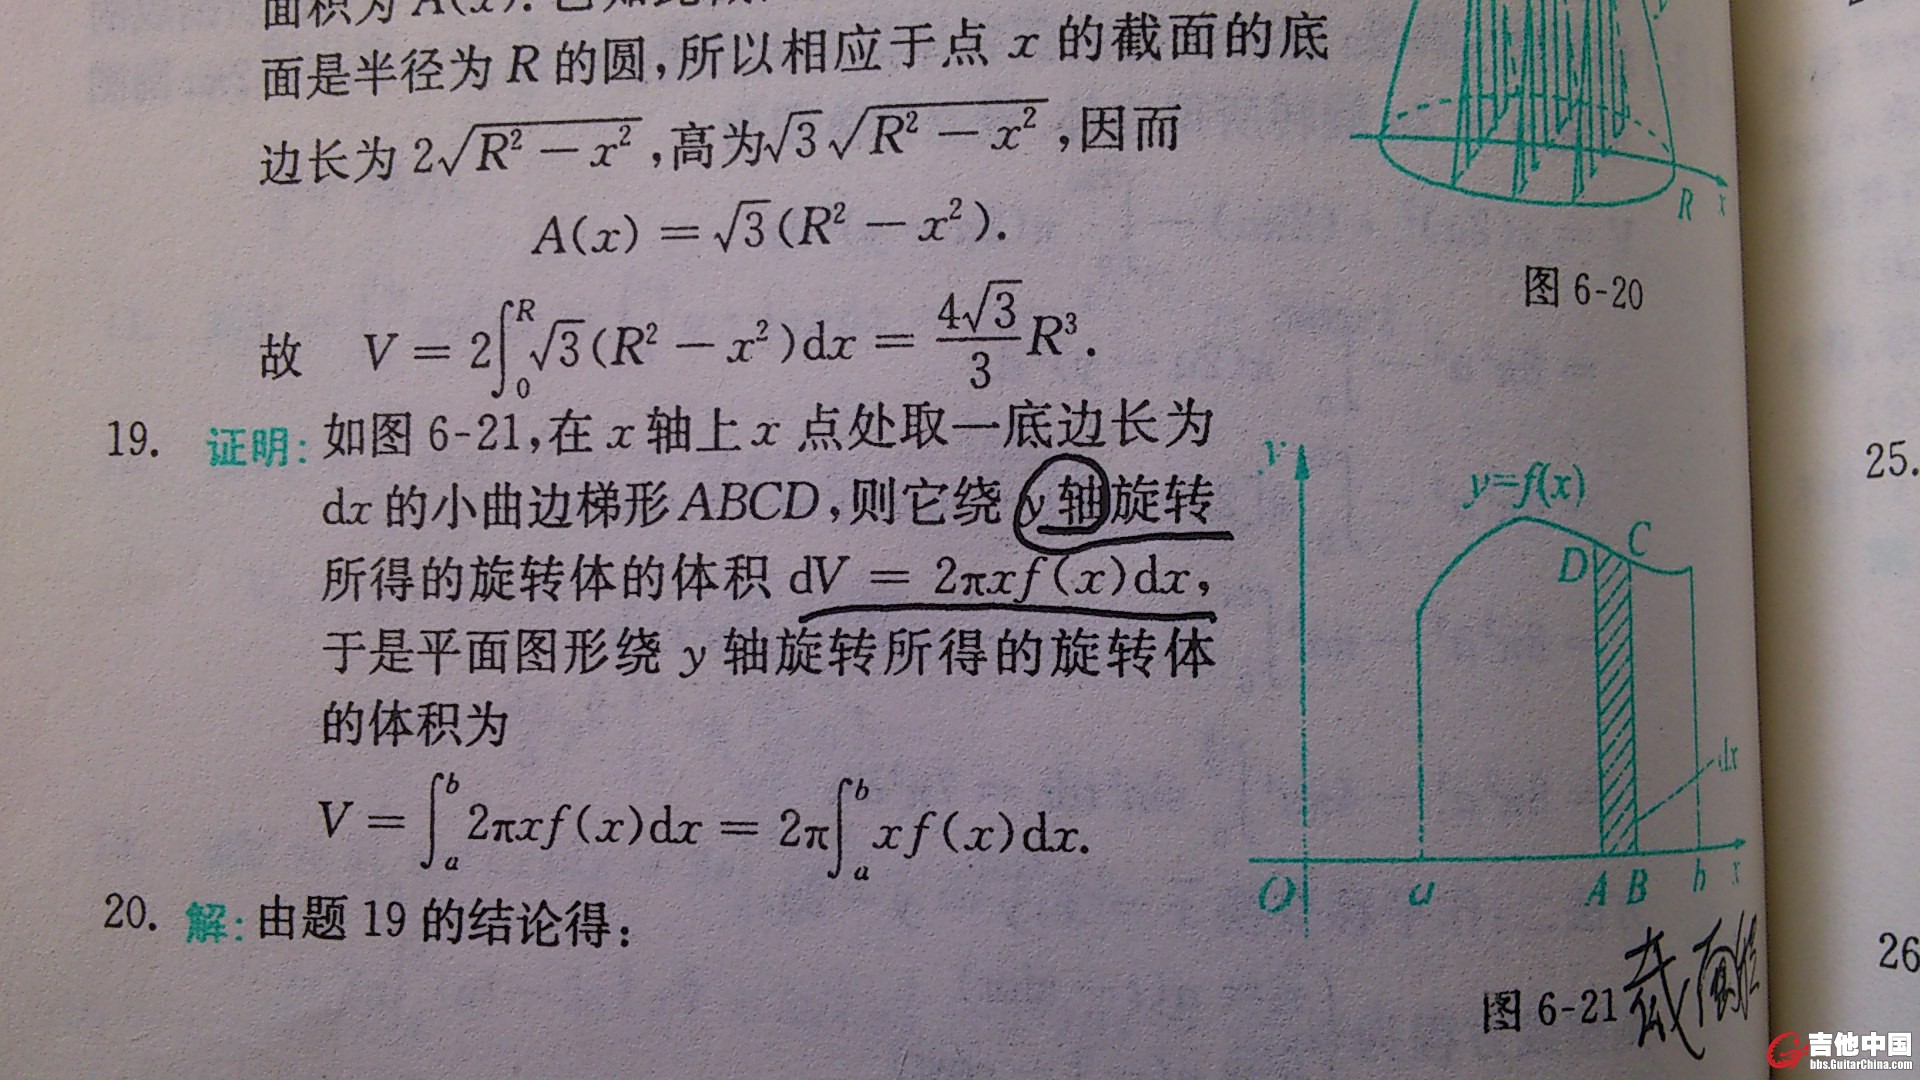 面积为 A(x).
面是半径为 R 的圆,所以相应于点 x 的截面的底
边长为 2√(R² − x²),高为√3√(R² − x²),因而
A(x) = √3(R² − x²).
故 V = 2∫₀ᴿ √3(R² − x²)dx = 4√3/3 R³.
R x
图 6-20
19. 证明: 如图 6-21,在 x 轴上 x 点处取一底边长为
dx 的小曲边梯形 ABCD,则它绕 y 轴旋转
所得的旋转体的体积 dV = 2πxf(x)dx,
于是平面图形绕 y 轴旋转所得的旋转体
的体积为
V = ∫ₐᵇ 2πxf(x)dx = 2π∫ₐᵇ xf(x)dx.
20. 解: 由题 19 的结论得:
y
y=f(x)
D C
dx
O a A B b x
图 6-21
25.
26
吉他中国
bbs.GuitarChina.com